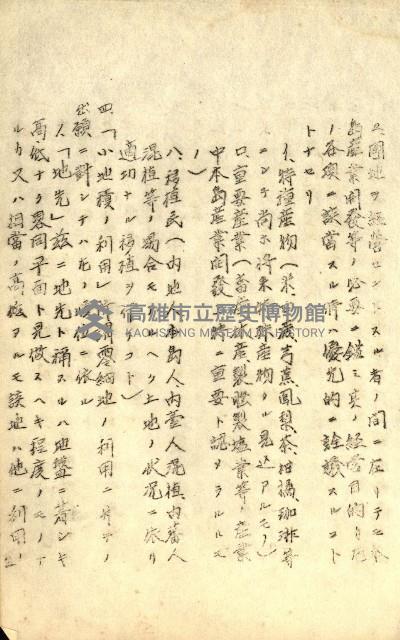 又團地ヲ經營セントスル者ノ間ニ在リテモ本
島産業開發等ノ必要ニ鑑ミ其ノ經營目的カ左
ノ各項ニ該當スル時ハ優先的ニ詮議スルコト
トナセリ
イ、特種産物(米 青蕉鳳梨茶柑橘珈琲等
ニシテ尚ホ將來 産物タル見込アルモノ)
ロ、重要産業(畜産 産製 製塩業等ノ産業
中本島産業開發 ニ重要ト認メラルルモ
ノ)
ハ、移植民(内地人本島人、内臺人混植、内蕃人
混植等ノ場合モアルヘク土地ノ狀況ニ依リ
適切ナル移植ヲ コト)
四、「小地積ノ利用」 零細地ノ利用ニ付テノ
出願ニ對シテハ左ノ ニ依ル
人「地先」茲ニ地先ト稱スルハ地盤ニ著シキ
高低ナク畧同平面ト見做スヘキ程度ノモノナ
ルカ又ハ相當ノ高低アルモ該地ハ他ニ利用ノ
高雄市立歷史博物館
KAOHSIUNG MUSEUM OF HISTORY